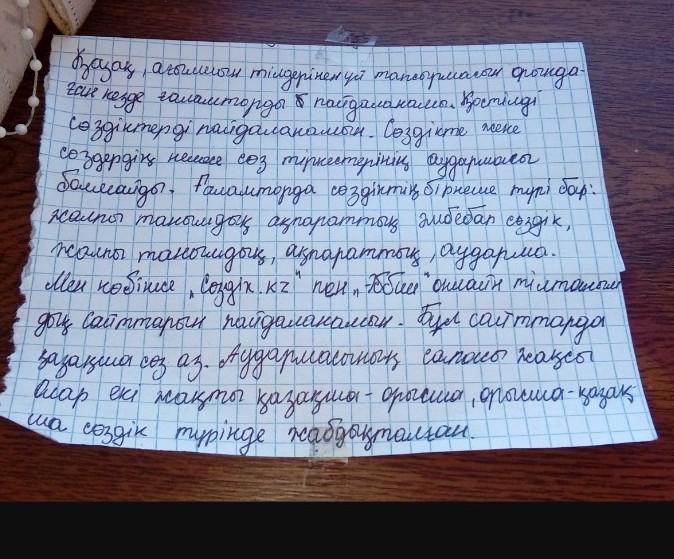 Қазақ, ағылшын тілдерінен үй тапсырмасын орында-
ған кезде ғаламторды б пайдаланамы. Қостілді
сөздіктерді пайдаланамын. Сөздікте жеке
сөздердің немесе сөз тіркестерінің аудармасы
болмайды. Ғаламторда сөздіктің бірнеше түрі бар:
жалпы танымдық ақпараттық әмбебап сөздік,
жалпы танымдық, ақпараттық, аударма.
Мен көбінше „Сөздік.kz" пен онлайн тілтаным
дық сайттарын пайдаланамын. Бұл сайттарда
қазақша сөз аз. Аудармасының сапасы жақсы
Олар екі жақты қазақша-орысша, орысша-қазақ
ша сөздік түрінде жабдықталған.